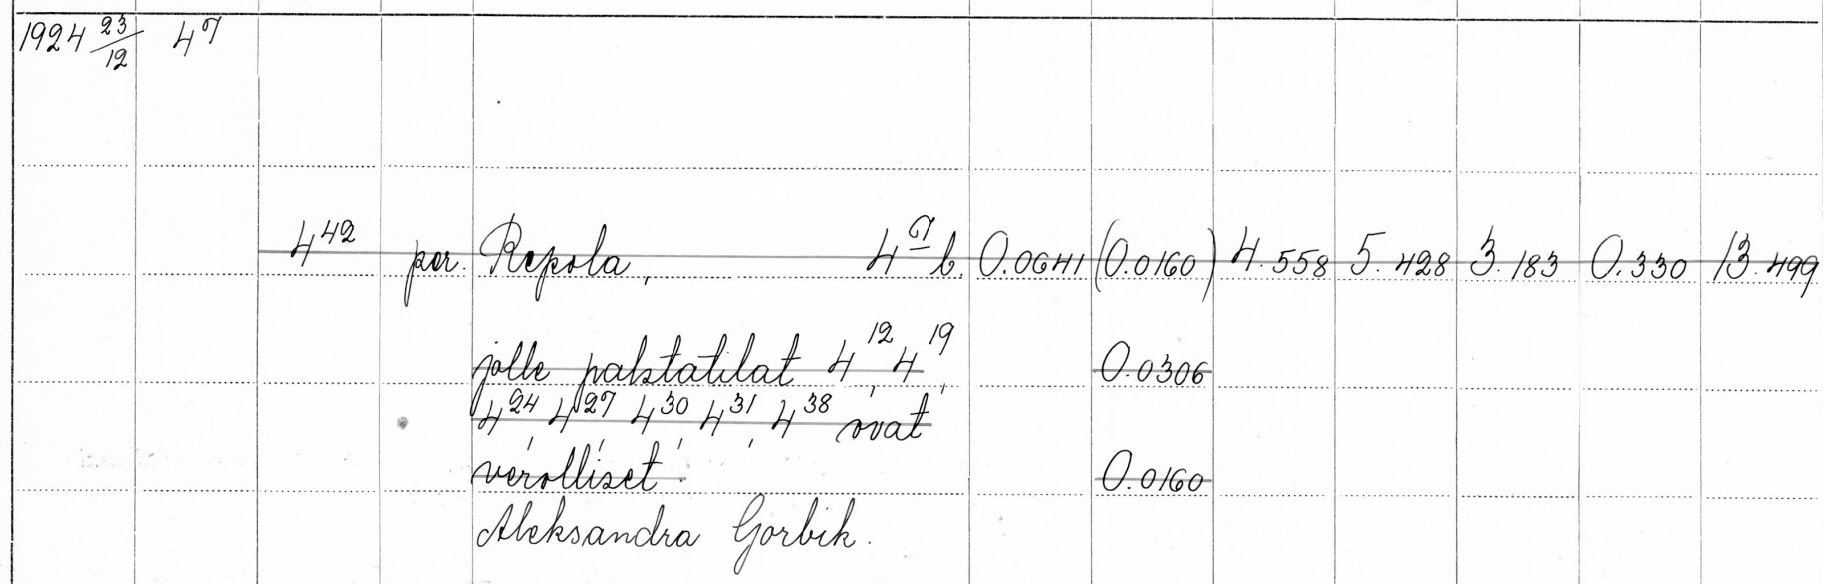 1924 23/12 4⁷
4⁴² per. Repola, 4⁷ b. 0.0641 (0.0160) 4.558 5.428 3.183 0.330 13.499
jolle palstatilat 4¹², 4¹⁹, 0.0306
4²⁴, 4²⁷, 4³⁰, 4³¹, 4³⁸ ovat
verolliset. 0.0160
Aleksandra Gorbik.